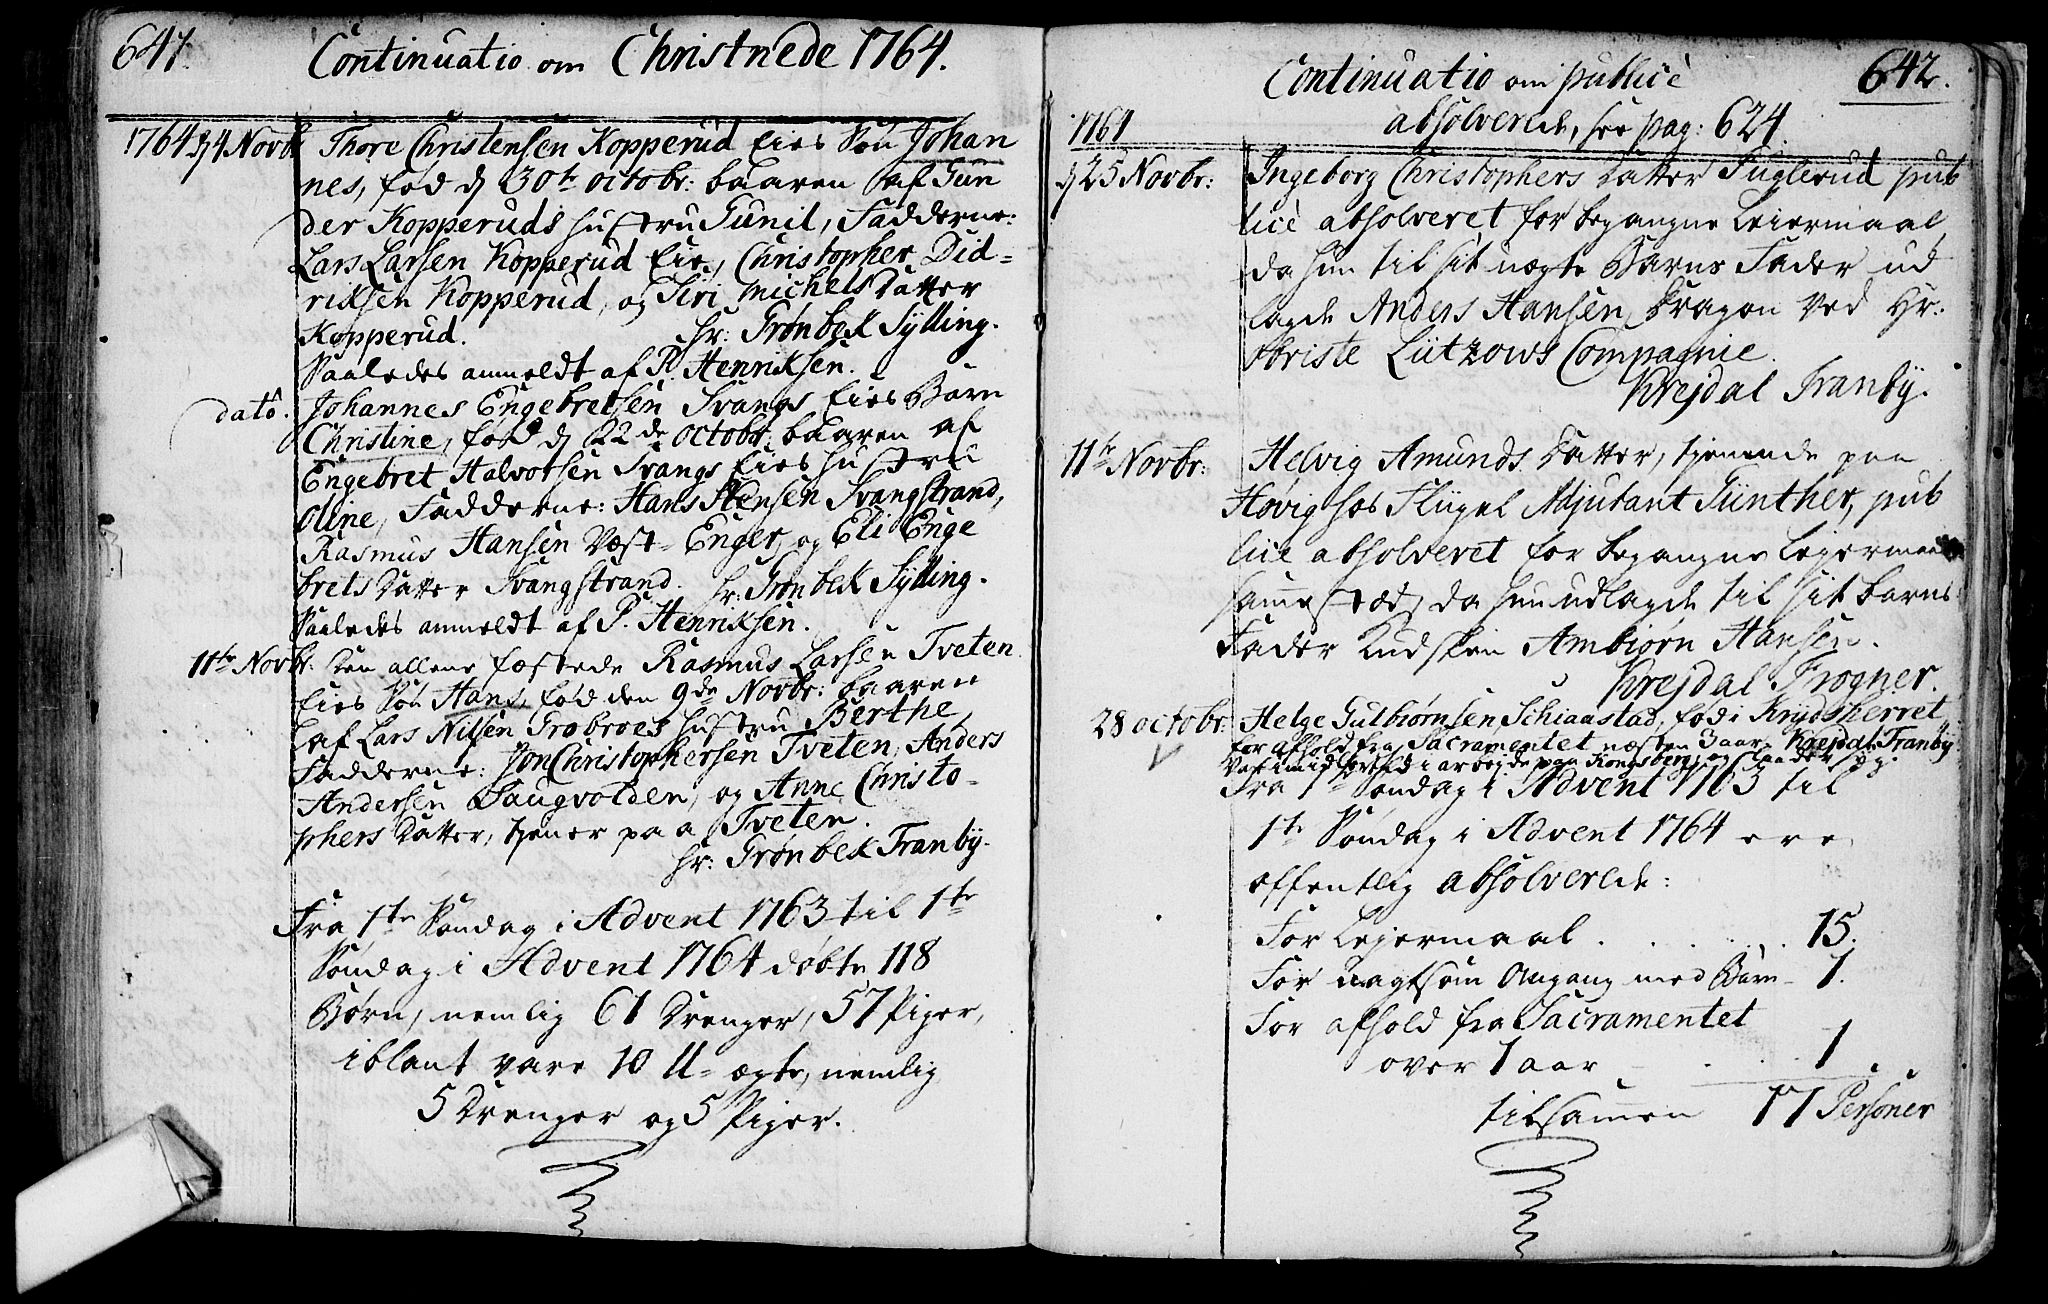 641. Continuatio om Christnede 1764.
1764 d 4 Novbr Thore Christensen Kopperud Eies Søn Johan
nes, fød d 30te octobr: baaren af Gun
der Kopperuds hustru Gunil, Fadderne:
Lars Larsen Kopperud Eie, Christopher Did=
riksen Kopperud, og Siri Michels Datter
Kopperud. hr: Grønbek Sylling.
Saaledes anmeldt af P. Henriksen.
dato. Johannes Engebretsen Svangs Eies Barn
Christine, fød d 22de octobr: baaren af
Engebret Halvorsen Svangs Eies hustru
Oline, Fadderne: Hans Stensen Svangstrand,
Rasmus Hansen Væst=Enger, og Eli Enge
brets Datter Svangstrand. hr: Grønbek Sylling.
Saaledes anmeldt af P. Henriksen.
11te Novbr: Den allene fæstede Rasmus Larsen Tveten
Eies Søn Hans, fød den 9de Novbr: baaren
af Lars Nilsen Grobroes hustru Berthe,
Fadderne: Jon Christophersen Tveten, Anders
Andersen Haugvolden, og Anne Christo=
phers Datter, tjener paa Tveten.
hr: Grønbek Tranby.
Fra 1te Søndag i Advent 1763 til 1te
Søndag i Advent 1764 døbte 118
Børn, nemlig 61 Drenger, 57 Piger,
iblant vare 10 U=ægte, nemlig
5 Drenger og 5 Piger.
Continuatio om publicè 642.
1764 absolverede, see pag: 624
d 25 Novbr: Ingeborg Christophers Datter Fuglerud pub
licè absolveret for begangne Leiermaal,
da hun til sit uægte Barns Fader ud
lagde Anders Hansen, Dragon ved Hr:
Obriste Lützows Compagnie.
Krejdal Tranby.
11te Novbr: Helvig Amunds Datter, tjenende paa
Høvig hos Flügel Adjutant Günther, pub
lice absolveret for begangne Lejermaal
samestæds, da hun udlagde til sit barns
Fader Kudsken Ambiørn Hansen.
Krejdal Frogner.
28 octobr: Helge Gulbiørnsen Schiaastad, fød i Krydsherret
for afhold fra Sacramentet næsten 3 aar. Krejdal Tranby
Var imidlertid i arbejde paa Kongsberg, og
Fra 1te Søndag i Advent 1763 til
1te Søndag i Advent 1764 ere
offentlig absolverede:
For Lejermaal . . . . . . 15.
For uagtsom Omgang med Barn - 1.
For afhold fra Sacramentet
over 1 aar . . . 1.
tilsamen 17 Personer